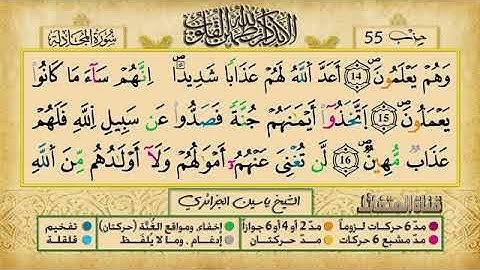 حِزْب 55
ألا بذكر الله تطمئن القلوب
سُورَةُ المُجَادَلَة
وَهُمْ يَعْلَمُونَۖ 14 أَعَدَّ اَللَّهُ لَهُمْ عَذَابًا شَدِيدًاۖ اِنَّهُمْ سَآءَ مَا كَانُواْ
يَعْمَلُونَۖ 15 اِتَّخَذُوٓاْ أَيْمَٰنَهُمْ جُنَّةً فَصَدُّواْ عَن سَبِيلِ اِللَّهِ فَلَهُمْ
عَذَابٌ مُّهِينٌۖ 16 لَّن تُغْنِيَ عَنْهُمُۥٓ أَمْوَٰلُهُمْ وَلَآ أَوْلَٰدُهُم مِّنَ اَللَّهِ
الشيخ ياسين الجزائري
مدّ 6 حركات لزوماً مدّ 2 أو 4 أو 6 جوازاً إخفاء، ومواقع الغُنَّة (حركتان) تفخيم
مدّ مشبع 6 حركات مدّ حركتان إدغام، وما لا يُلفَظ قلقلة